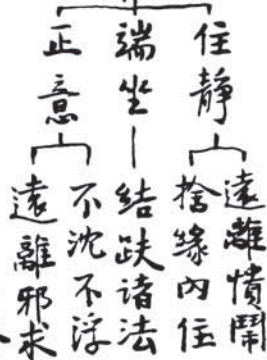 住靜
遠離憒鬧
捨緣內住
端坐
結趺諸法
正意
不沈不浮
遠離邪求